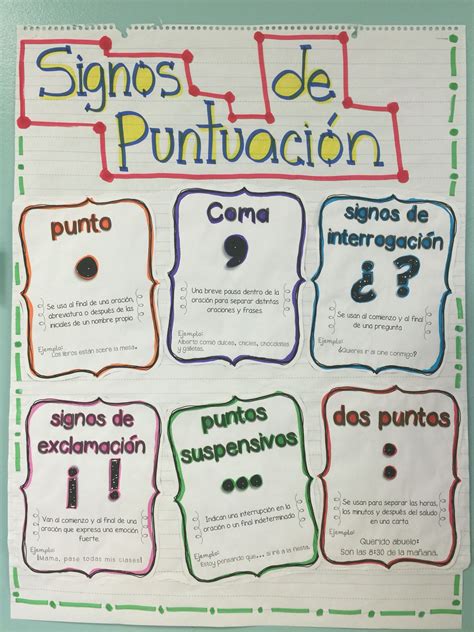 Signos de
Puntuación
punto
.
Se usa al final de una oración,
abreviatura o después de las
iniciales de un nombre propio.
Ejemplo:
Los libros están sobre la mesa.
Coma
,
Una breve pausa dentro de la
oración para separar distintas
oraciones y frases.
Ejemplo:
Alberto come dulces, chicles, chocolates
y galletas.
signos de
interrogación
¿?
Se usan al comienzo y al final de
una pregunta
Ejemplo:
¿Quieres ir al cine conmigo?
signos de
exclamación
¡!
Van al comienzo y al final de una
oración que expresa una emoción
fuerte.
Ejemplo:
¡Mama, pase todas mis clases!
puntos
suspensivos
...
Indican una interrupción en la
oración o un final indeterminado
Ejemplo:
Estoy pensando que... si iré a la fiesta.
dos puntos
:
Se usan para separar las horas,
los minutos y después del saludo
en una carta.
Querido abuelo:
Son las 8:30 de la mañana.